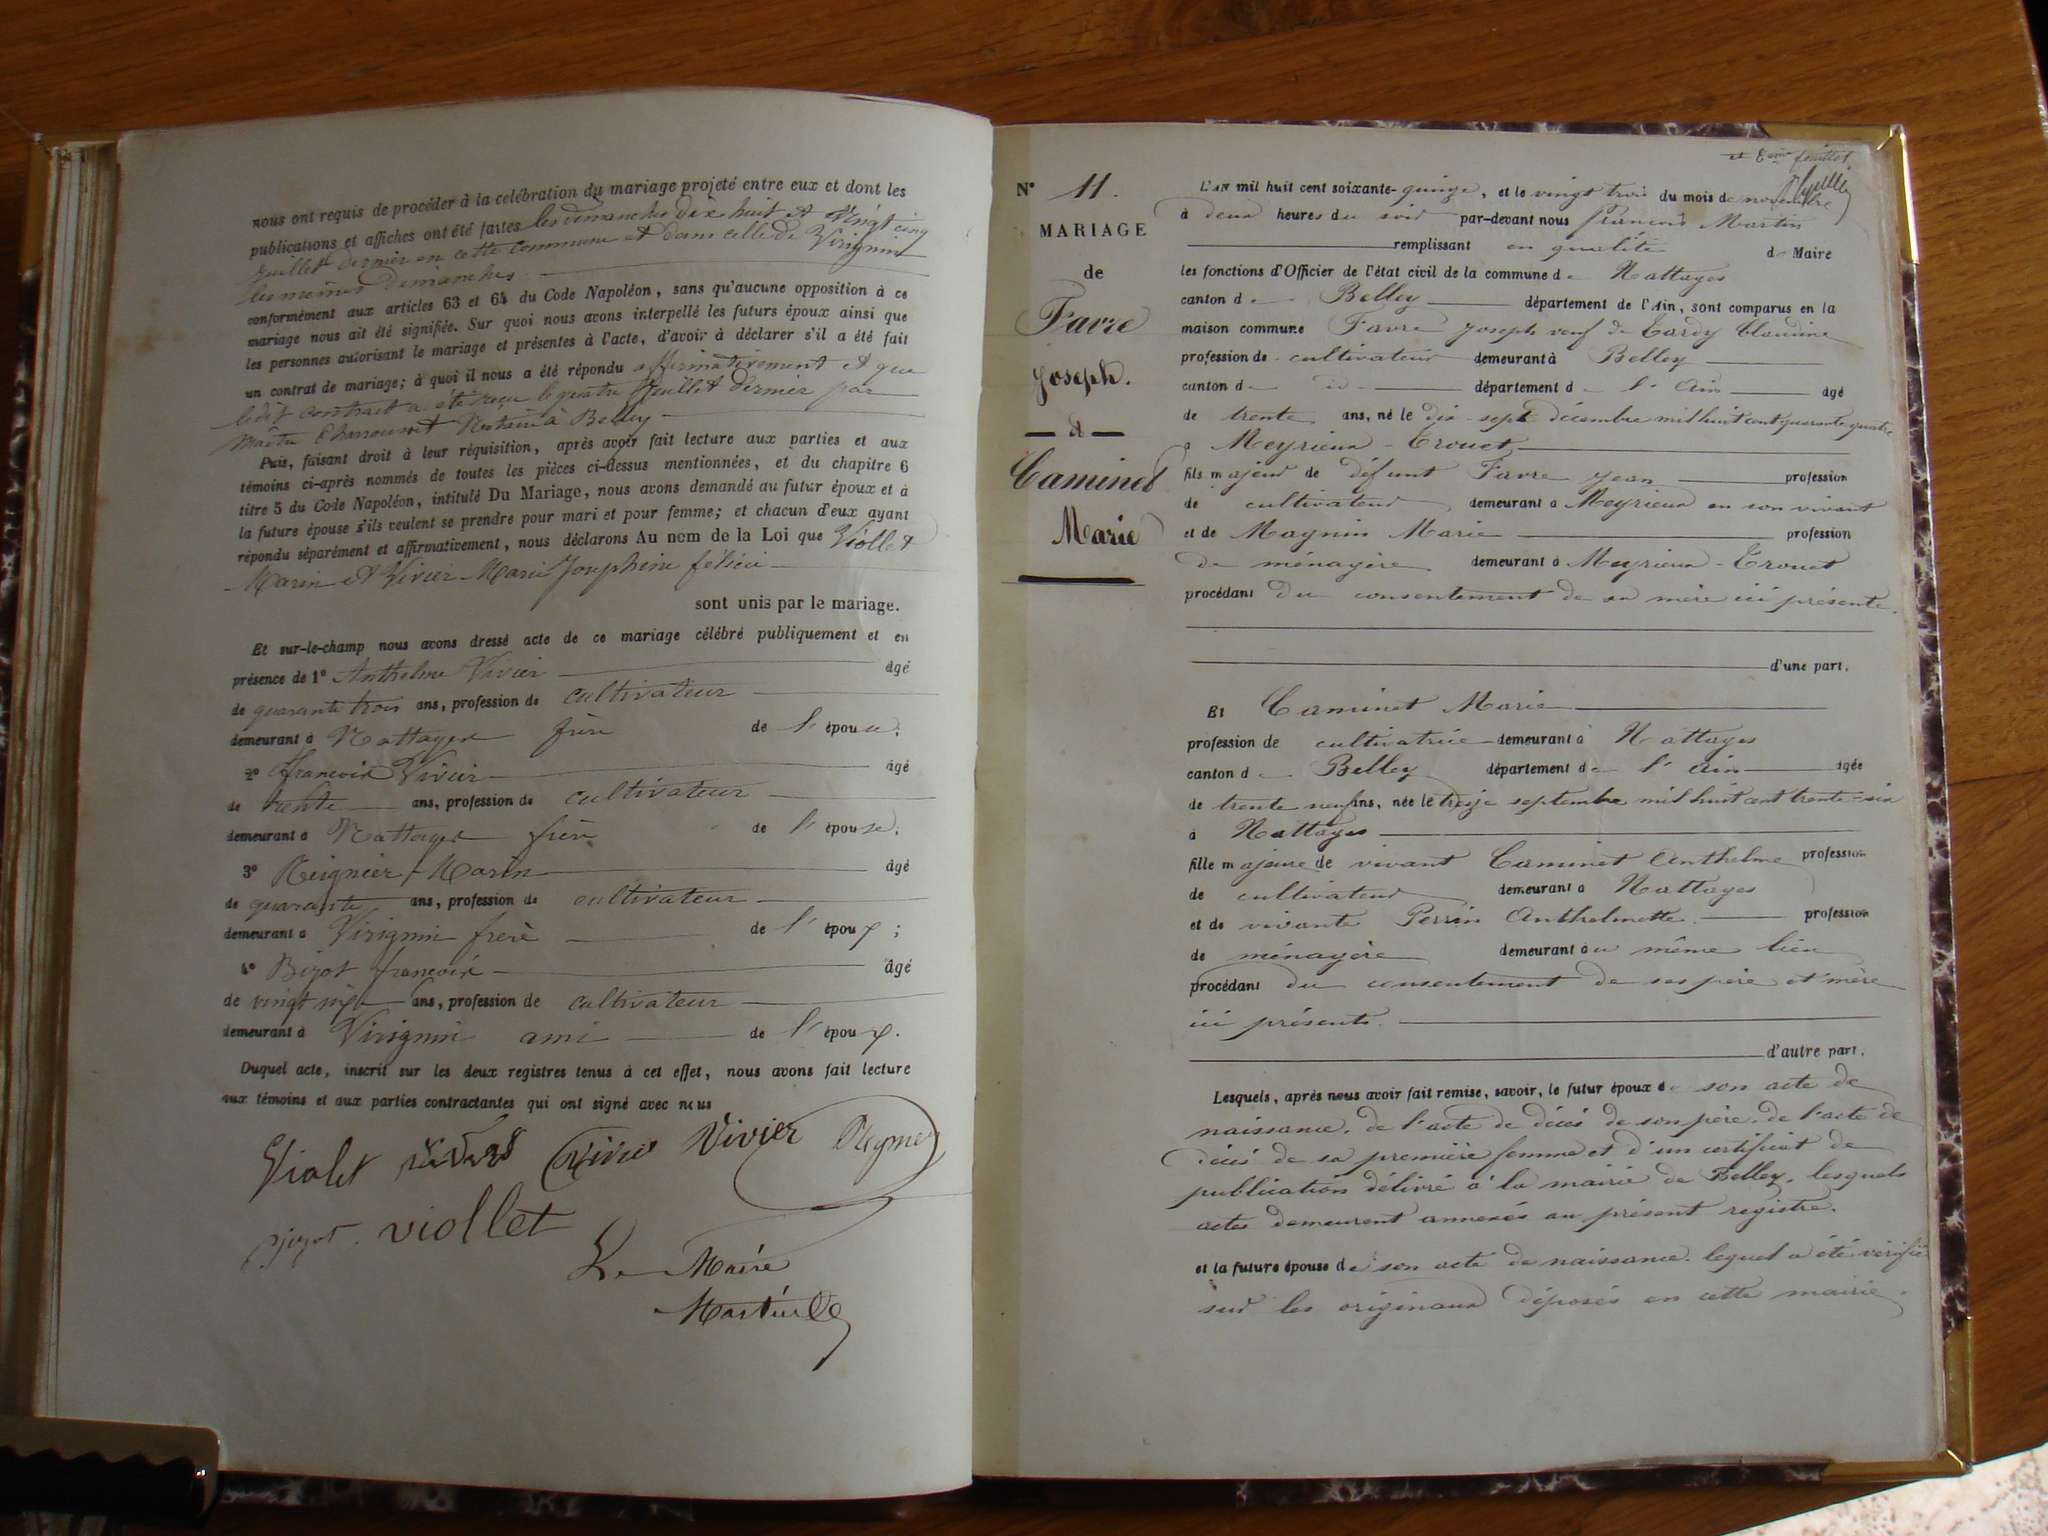 nous ont requis de procéder à la celébration du mariage projeté entre eux et dont les
publications et affiches ont été faites les dimanches dix huit et vingt cinq
juillet dernier en cette commune et dans celle de Virignin
les mêmes dimanches
conformément aux articles 63 et 64 du Code Napoléon, sans qu'aucune opposition à ce
mariage nous ait été signifiée. Sur quoi nous avons interpellé les futurs époux ainsi que
les personnes autorisant le mariage et présentes à l'acte, d'avoir à déclarer s'il a été fait
un contrat de mariage; à quoi il nous a été répondu affirmativement et que
ledit contract a été reçu le quatre Juillet dernier par
Maître Notaire à Belley
Puis, faisant droit à leur réquisition, après avoir fait lecture aux parties et aux
témoins ci-après nommés de toutes les pièces ci-dessus mentionnées, et du chapitre 6
titre 5 du Code Napoléon, intitulé Du Mariage, nous avons demandé au futur époux et à
la future épouse s'ils veulent se prendre pour mari et pour femme; et chacun d'eux ayant
répondu séparément et affirmativement, nous déclarons Au nom de la Loi que Viollet
Marin et Vivier Marie Josephine félicie
sont unis par le mariage.
Et sur-le-champ nous avons dressé acte de ce mariage célébré publiquement et en
présence de 1° Anthelme Vivier âgé
de quarante trois ans, profession de cultivateur
demeurant à Nattages frère de l'épouse;
2° françois Vivier âgé
de trente ans, profession de cultivateur
demeurant à Nattages frère de l'épouse;
3° Reignier Marin âgé
de quarante ans, profession de cultivateur
demeurant à Virignin frère de l'époux;
4° Bizot françois âgé
de vingt six ans, profession de cultivateur
demeurant à Virignin ami de l'époux.
Duquel acte, inscrit sur les deux registres tenus à cet effet, nous avons fait lecture
aux témoins et aux parties contractantes qui ont signé avec nous
Violet Vivier Vivier
viollet
Le Maire
Martin
et 8ème feuillet
N° 11.
MARIAGE
de
Favre
Joseph.
et
Caminet
Marie
L'AN mil huit cent soixante-quinze, et le vingt trois du mois de novembre
à deux heures du soir par-devant nous François Martin
remplissant en qualité de Maire
les fonctions d'Officier de l'état civil de la commune de Nattages
canton de Belley département de l'Ain, sont comparus en la
maison commune Favre Joseph veuf de Tardy Claudine
profession de cultivateur demeurant à Belley
canton de id département de l'Ain âgé
de trente ans, né le dix sept décembre mil huit cent quarante quatre
à Meyrieux-Trouet
fils majeur de défunt Favre Jean profession
de cultivateur demeurant à Meyrieux en son vivant
et de Magnin Marie profession
de ménagère demeurant à Meyrieux-Trouet
procédant du consentement de sa mère ici présente.
d'une part.
Et Caminet Marie
profession de cultivatrice demeurant à Nattages
canton de Belley département de l'Ain âgée
de trente neuf ans, née le treize septembre mil huit cent trente-six
à Nattages
fille majeure de vivant Caminet Anthelme profession
de cultivateur demeurant à Nattages
et de vivante Perrin Anthelmette profession
de ménagère demeurant au même lieu
procédant du consentement de ses père et mère
ici présents.
d'autre part.
Lesquels, après nous avoir fait remise, savoir, le futur époux de son acte de
naissance. de l'acte de décès de son père. de l'acte de
décès de sa première femme et d'un certificat de
publication délivré à la mairie de Belley. lesquels
actes demeurent annexés au présent registre.
et la future épouse de son acte de naissance lequel a été vérifié
sur les originaux déposés en cette mairie.